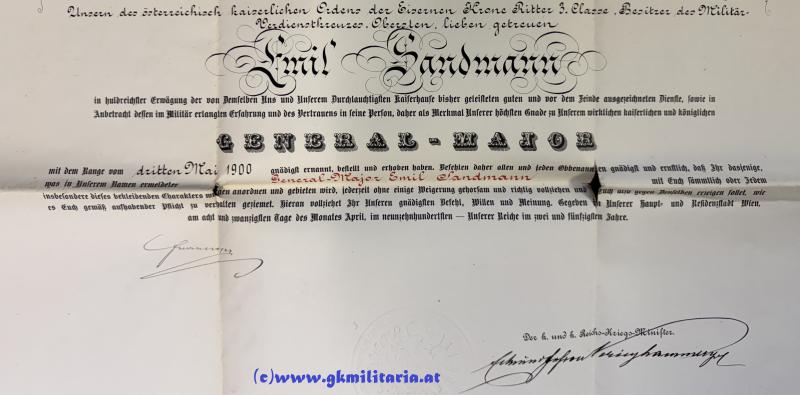 Unsern des österreichisch kaiserlichen Ordens der Eisernen Krone Ritter 3. Classe, Besitzer des Militär-
Verdienstkreuzes, Obersten, lieben getreuen
Emil Sandmann
in huldreichster Erwägung der von Demselben Uns und Unserem Durchlauchtigsten Kaiserhause bisher geleisteten guten und vor dem Feinde ausgezeichneten Dienste, sowie in
Anbetracht dessen im Militär erlangten Erfahrung und des Vertrauens in seine Person, daher als Merkmal Unserer höchsten Gnade zu Unserem wirklichen kaiserlichen und königlichen
GENERAL-MAJOR
mit dem Range vom dritten Mai 1900 gnädigst ernannt, bestellt und erhoben haben. Befehlen daher allen und jeden Obbenannten gnädigst und ernstlich, daß Ihr dasjenige,
was in Unserem Namen ermeldeter General-Major Emil Sandmann mit Euch sämmtlich oder Jedem
insbesondere dieses bekleidenden Charakters anordnen und gebieten wird, jederzeit ohne einige Weigerung gehorsam und richtig vollziehen und Euch also gegen Denselben erzeigen sollet, wie
es Euch gemäß aufhabender Pflicht zu verhalten geziemet. Hieran vollziehet Ihr Unseren gnädigsten Befehl, Willen und Meinung. Gegeben in Unserer Haupt- und Residenzstadt Wien,
am acht und zwanzigsten Tage des Monates April, im neunzehnhundertsten — Unserer Reiche im zwei und fünfzigsten Jahre.
Der k. und k. Reichs-Kriegs-Minister.
(c)www.gkmilitaria.at